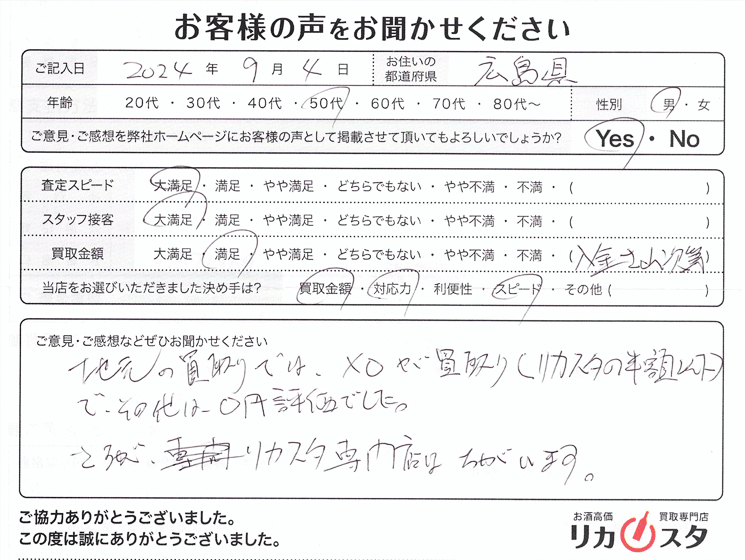 お客様の声をお聞かせください
ご記入日 2024 年 9 月 4 日 お住いの都道府県 広島県
年齢 20代 ・ 30代 ・ 40代 ・ 50代 ・ 60代 ・ 70代 ・ 80代〜 性別 男 ・ 女
ご意見・ご感想を弊社ホームページにお客様の声として掲載させて頂いてもよろしいでしょうか? Yes ・ No
査定スピード 大満足 ・ 満足 ・ やや満足 ・ どちらでもない ・ やや不満 ・ 不満 ・ ( )
スタッフ接客 大満足 ・ 満足 ・ やや満足 ・ どちらでもない ・ やや不満 ・ 不満 ・ ( )
買取金額 大満足 ・ 満足 ・ やや満足 ・ どちらでもない ・ やや不満 ・ 不満 ・ ( 次第)
当店をお選びいただきました決め手は? 買取金額 ・ 対応力 ・ 利便性 ・ スピード ・ その他 ( )
ご意見・ご感想などぜひお聞かせください
地元の買取りでは、XOが買取り(リカスタの半額以下)
で、その他は0円評価でした。
さすが、リカスタ専門店はちがいます。
ご協力ありがとうございました。
この度は誠にありがとうございました。
お酒高価 買取専門店
リカスタ